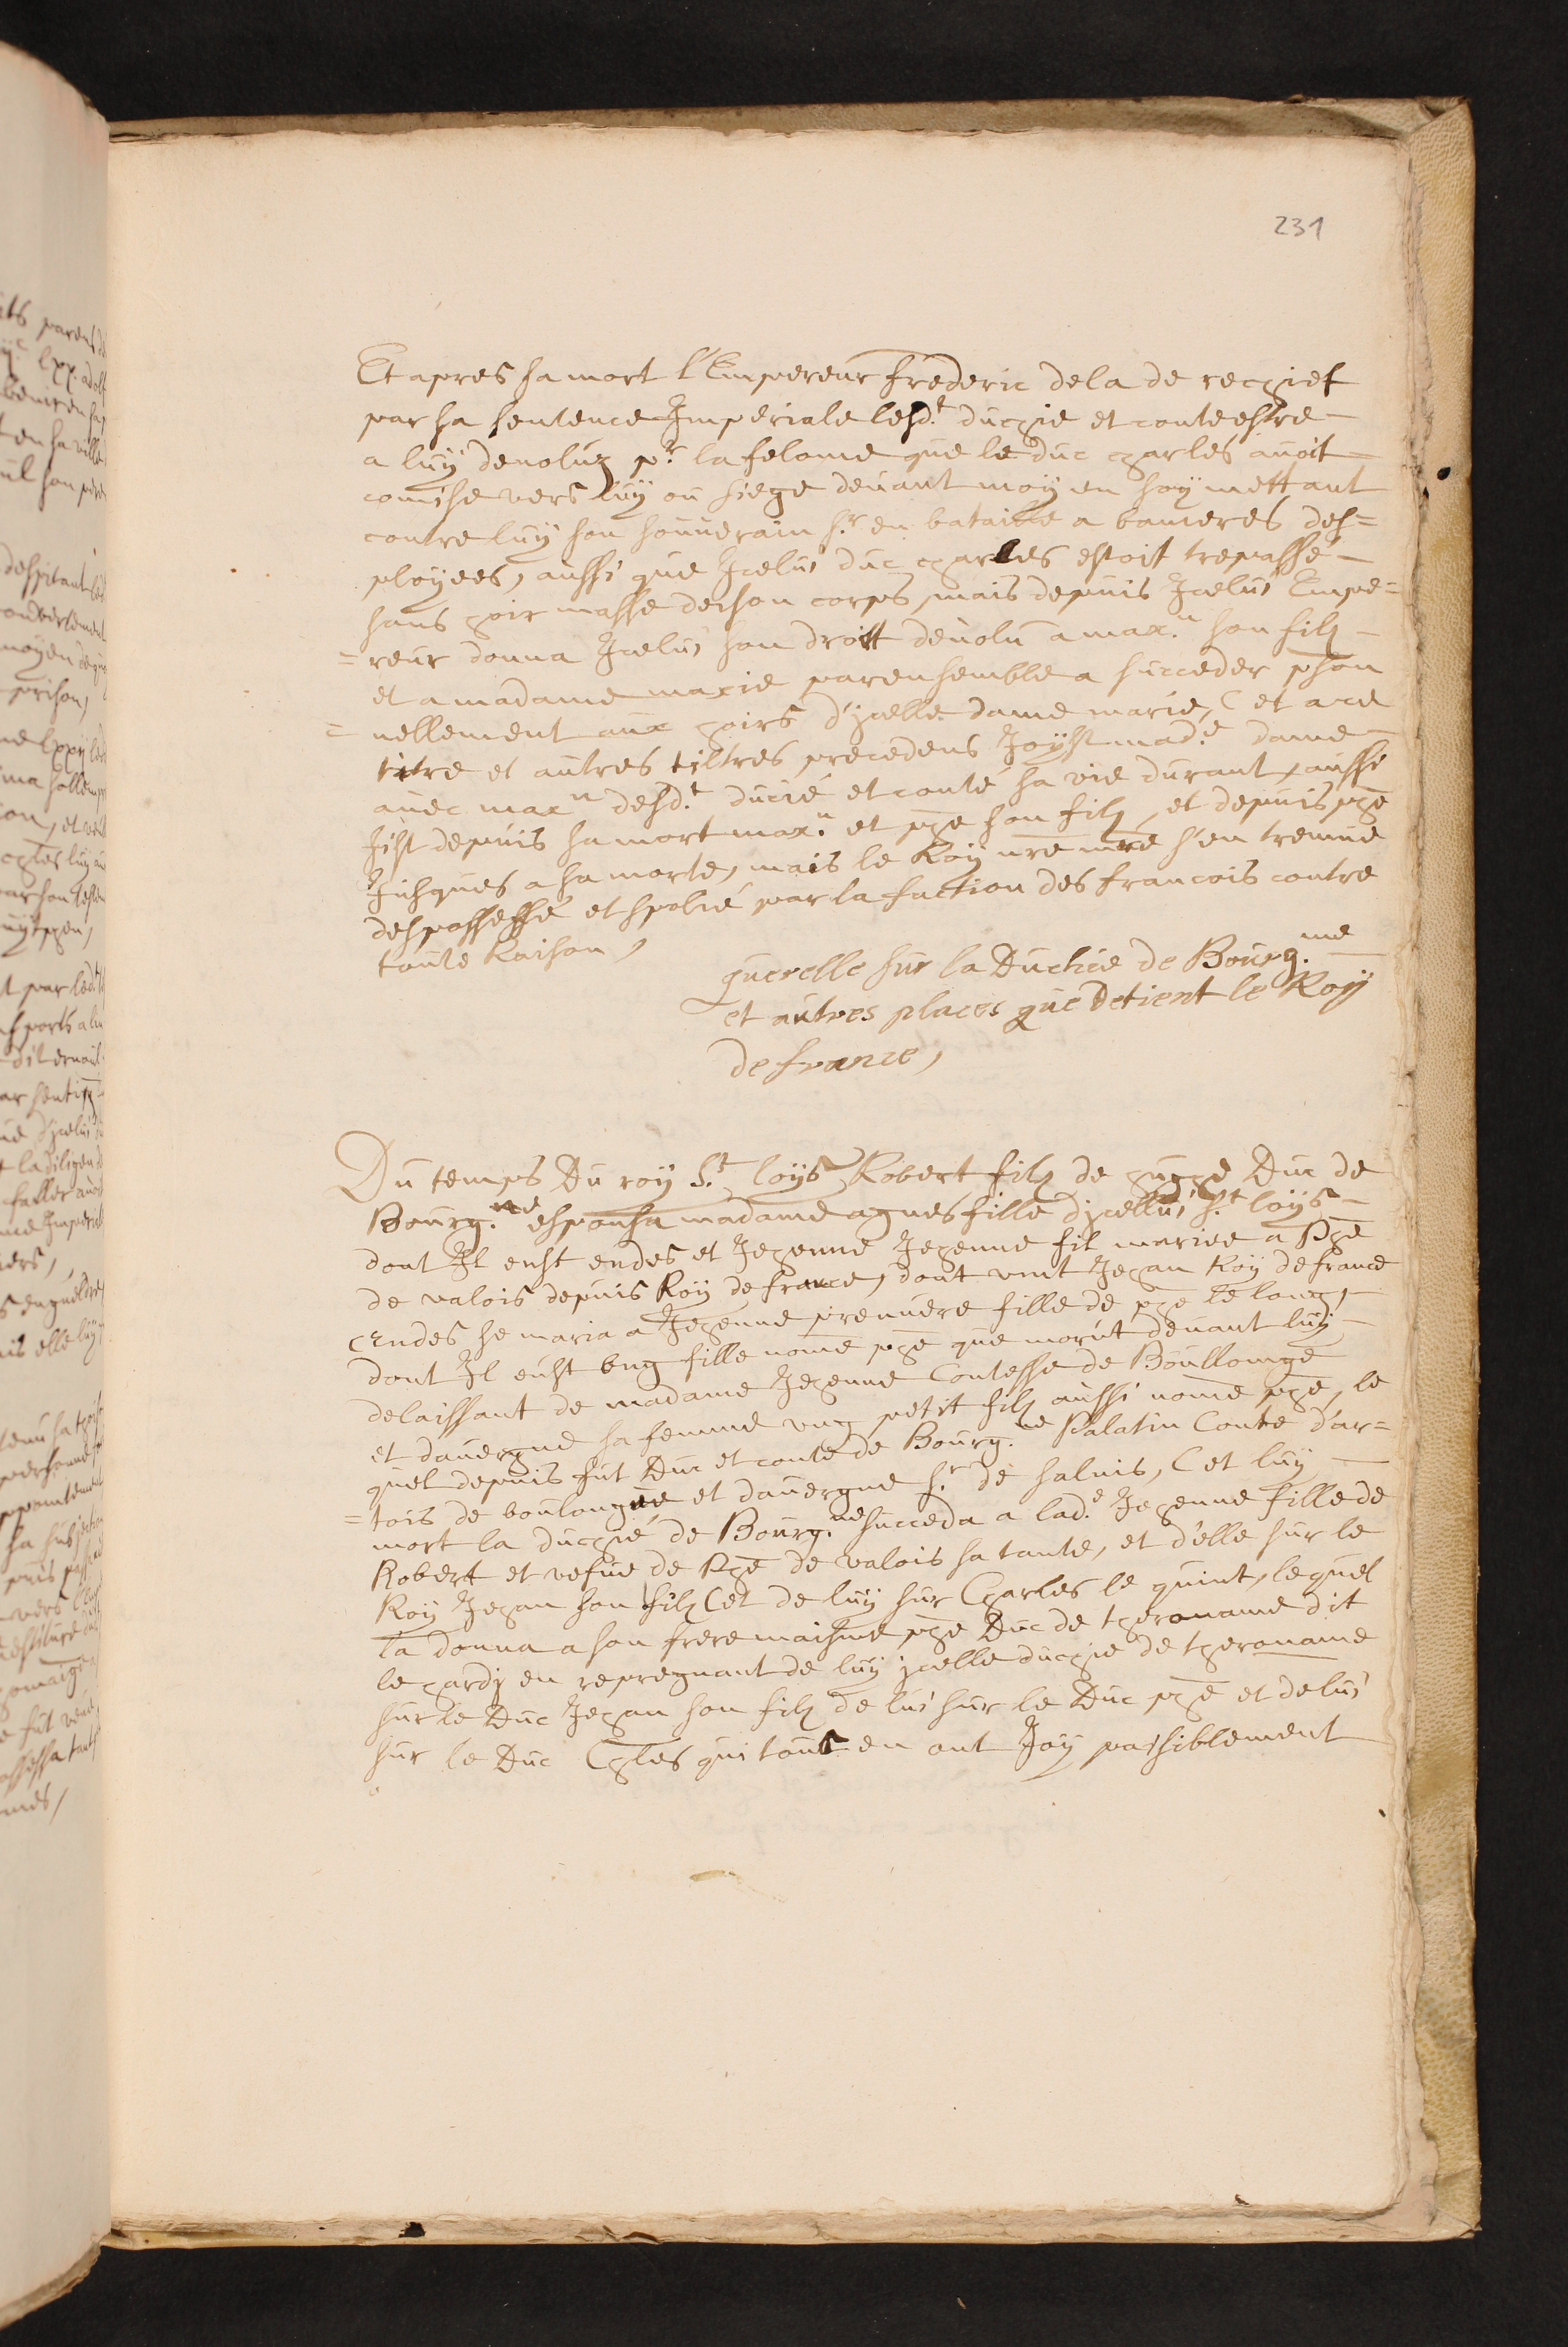 231
Et apres sa mort l'Empereur frederic dela de rechief
par sa sentence Imperiale lesd.t duchie et conte estre
a luy devoluz p.r la felonie que le duc charles avoit
comise vers luy ou siege devant moy en soy mettant
contre luy son souverain s.r en bataille a banieres des=
ployees, aussi que Icelui duc charles estoit trepassé
sans hoir masse de son corps, mais depuis Icelui Empe=
=reur donna Icelui son droitt devolu a max.n son filz
et a madame marie par ensemble a succeder pson
=nellement aux hoirs d'jcelle dame marie, Cet a ce
titre et autres tiltres precedens Joyst mad.e dame
avec max.n desd.t ducié et conté sa vie durant, aussi
fist depuis sa mort max.n et phe son filz, et depuis phe
Jusques a sa morte, mais le Roy nre mre s'en treuve
despossessé et spolié par la faction des francois contre
toute Raison,
querelle sur la Duchie de Bourg.ne
et autres places que detient le Roy
de france,
Du temps Du roy S.t loys Robert filz de hughe Duc de
Bourg.ne espousa madame agnes fille djcellui s.t loys
dont Il eust eudes et Jehenne Jehenne fit mariee a Phe
de valois depuis Roy de france, dont vint Jehan Roy de france
Eudes se maria a Jehenne premiere fille de phe le long,
dont Il eust ung fille nome phe que morut devant luy
delaissant de madame Jehenne Contesse de Boullonge
et davergne sa femme ung petit filz aussi nome phe, le
quel depuis fut Duc et conte de Bourg.ne Palatin Conte d'ar=
=tois de boulongne et davergne s.r de salnis, Cet luy
mort la duchié de Bourg.ne succeda a lad.e Jehenne fille de
Robert et vefue de Phe de valois sa tante, et d'elle sur le
Roy Jehan son filz Cet de luy sur Charles le quint, lequel
la donna a son frere maisme phe Duc de theroname dit
le hardj en reprehnant de luy jcelle duchie de theroname
sur le Duc Jehan son filz de lui sur le Duc phe et de lui
sur le Duc Chles qui tout en ont Joy paisiblement